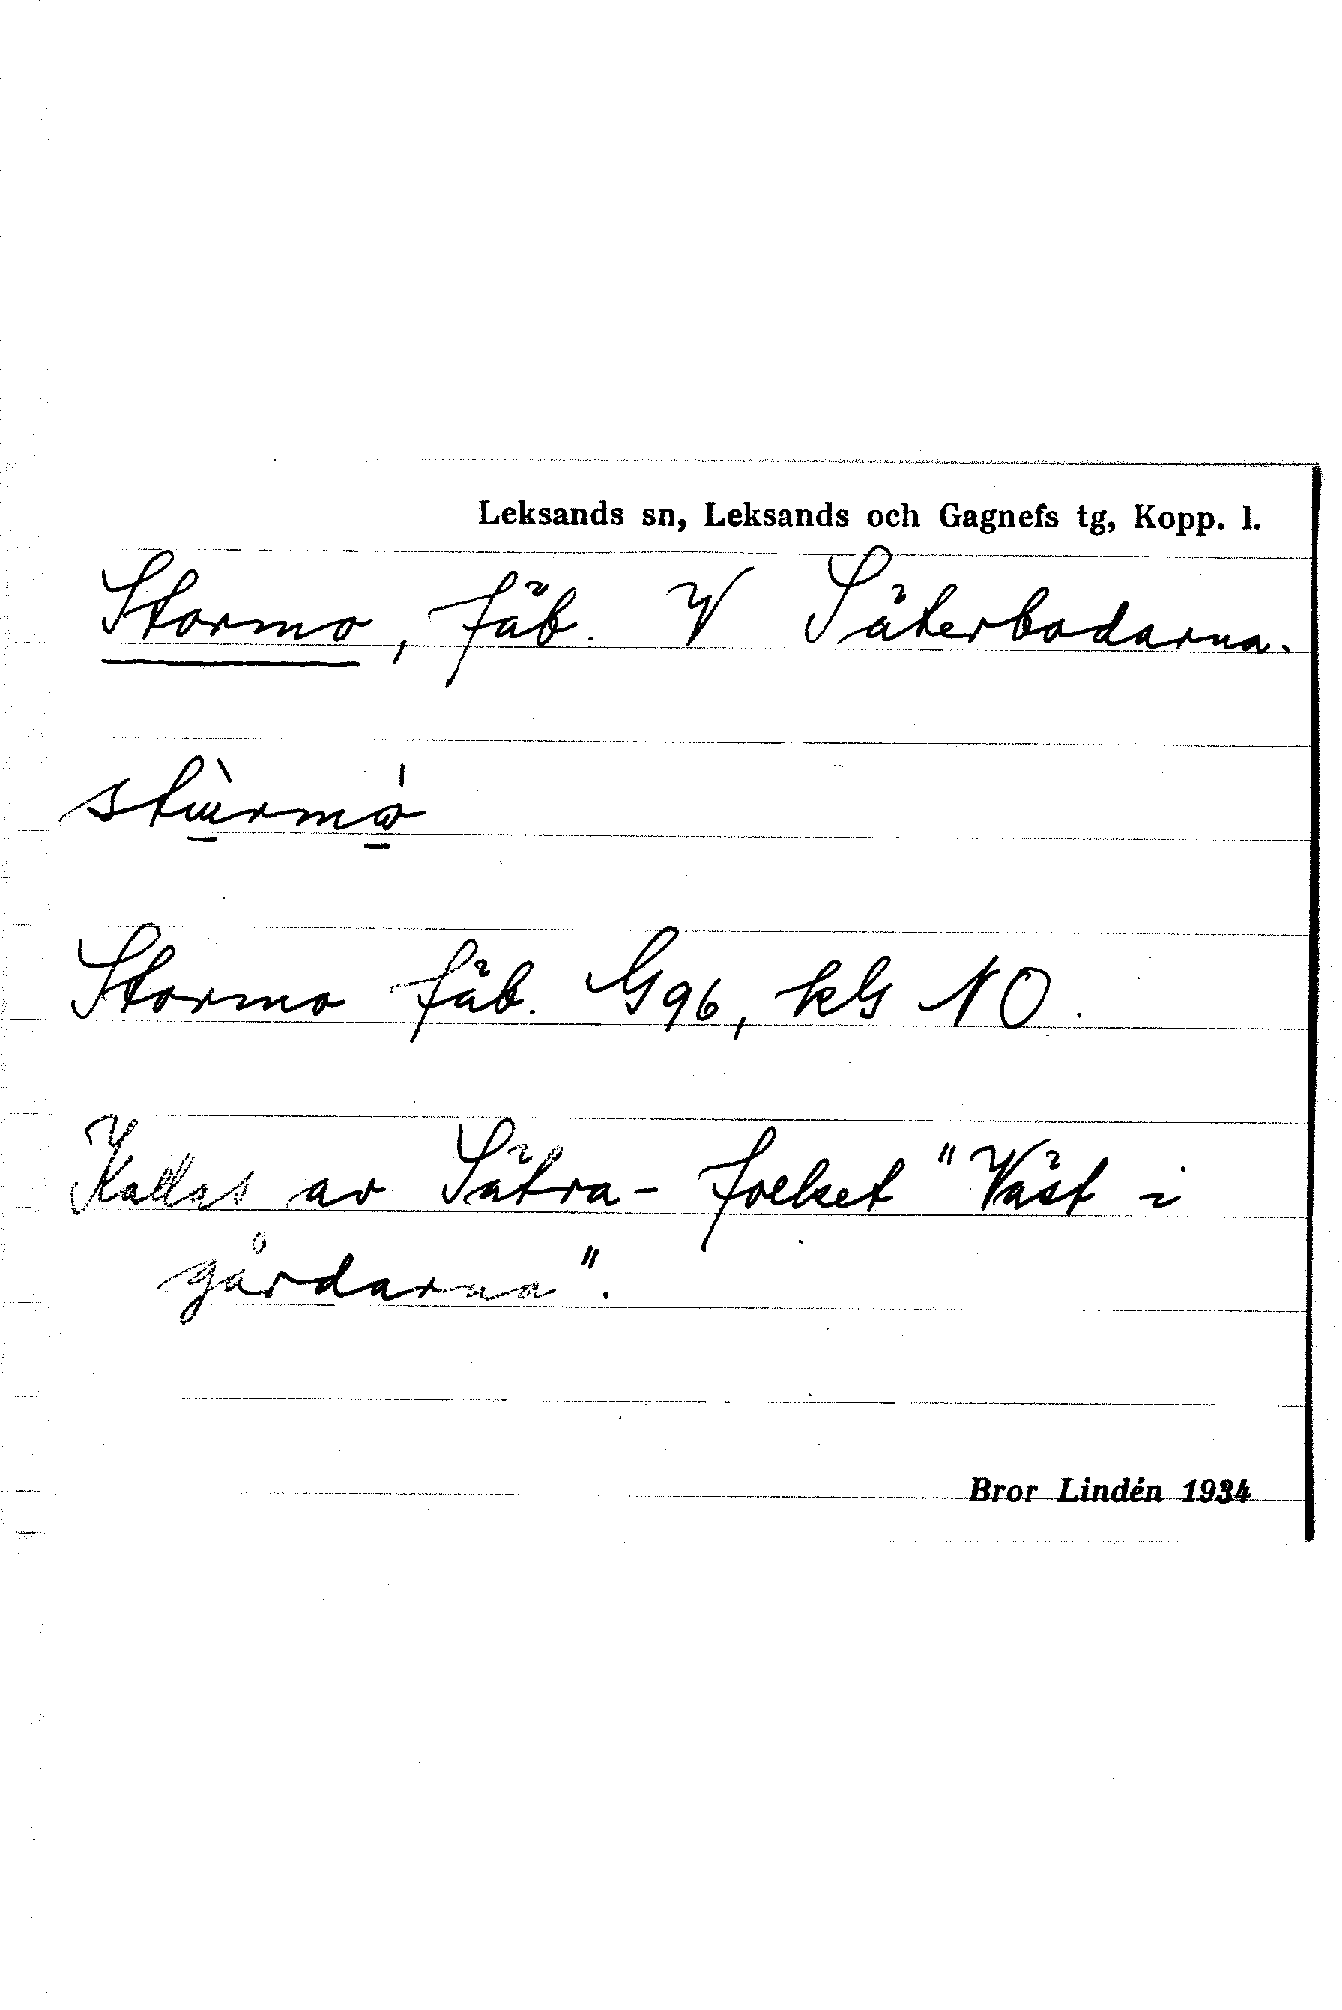 Leksands sn, Leksands och Gagnefs tg, Kopp. l.
Stormo, fäb. V Säterbodarna.
Stormo fäb. G96, kG NO.
Kallas av Sätra-folket "Väst i
gårdarna".
Bror Lindén 1934